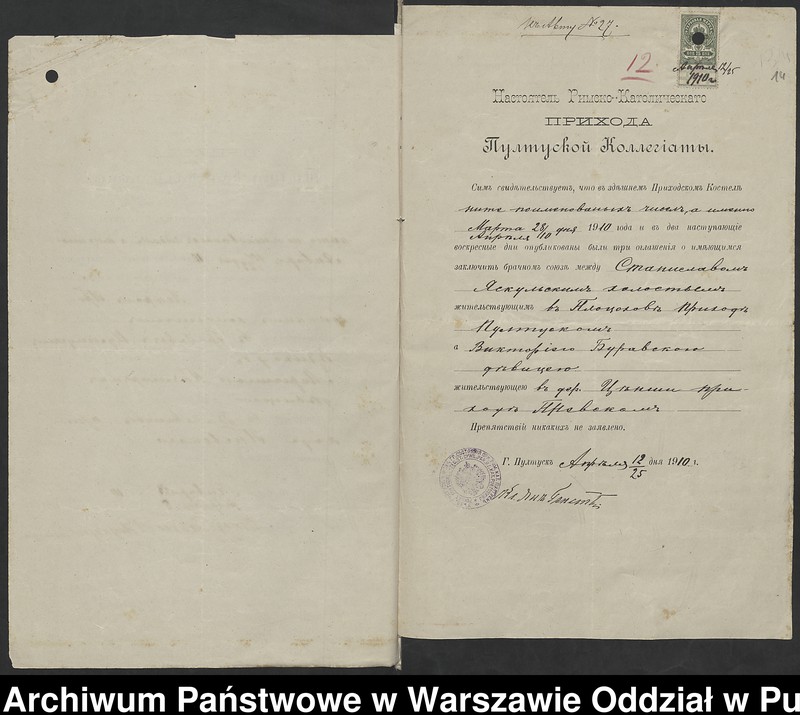 къ Акту №27.
12.
Апрѣля 12/25
1910 г.
14
Настоятель Римско-Католическаго
ПРИХОДА
Пултуской Коллегіаты.
Симъ свидѣтельствуетъ, что въ здѣшнемъ Приходскомъ Костелѣ
ниже поименованныхъ чиселъ, а именно
Марта 28/
Апрѣля 10 дня 1910 года и въ два наступающіе
воскресные дни опубликованы были три оглашенія о имѣющимся
заключить брачномъ союзѣ между Станиславомъ
Яскульскимъ холостымъ
жительствующимъ въ Плоцоховѣ приходѣ
Пултускомъ
а Викторіею Буравскою
дѣвицею
жительствующею въ дер. при-
ходѣ
Препятствій никакихъ не заявлено.
Г. Пултускъ Апрѣля 12/25 дня 1910 г.
Archiwum Państwowe w Warszawie Oddział w Pu